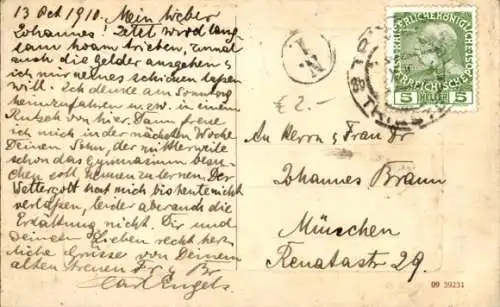 13 Oct 1910. Mein lieber
Johannes! Jetzt wird lang-
sam hoam trieben, zumal
auch die Gelder ausgehen &
ich mir neines schicken lassen
will. Ich denke am Sonntag
heimzufahren u. zw. in einem
Rutsch von hier. Dann freue
ich mich in der nächsten Woche
Deinen Sohn, der mittlerweile
schon das Gymnasium besu-
chen soll, kennen zu lernen. Der
Wettergott hat mich bis heute nicht
verlassen, leider aber auch die
Erkältung nicht. Dir und
Deinen Lieben recht herz-
liche Grüsse von Deinem
alten treuen Fr. & Br.
Carl Engels
KAISERLICHE KÖNIGLICHE
ÖSTERREICHISCHE
5 HELLER 5
£ 2.-
An Herrn & Frau Gr
Johannes Braun
München
Renatastr 29.
09 59231